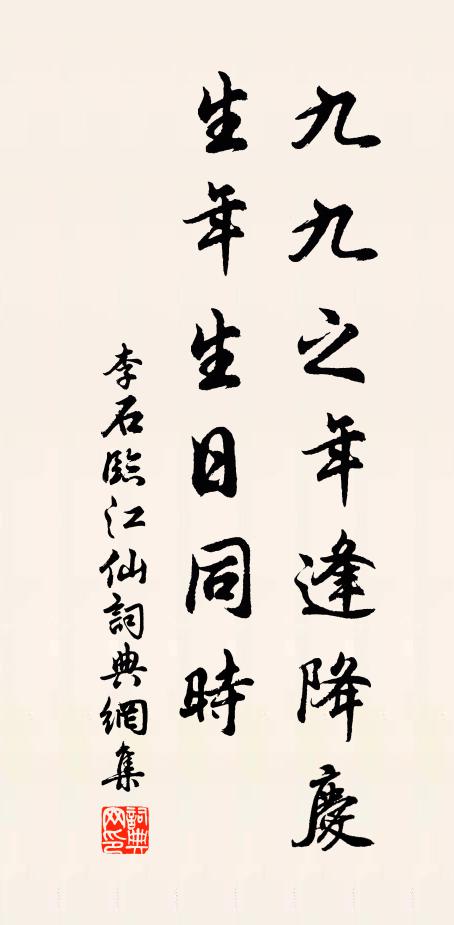 九九之年逢降慶
生年生日同時
李石臨江仙詞典網集
詞典
网印